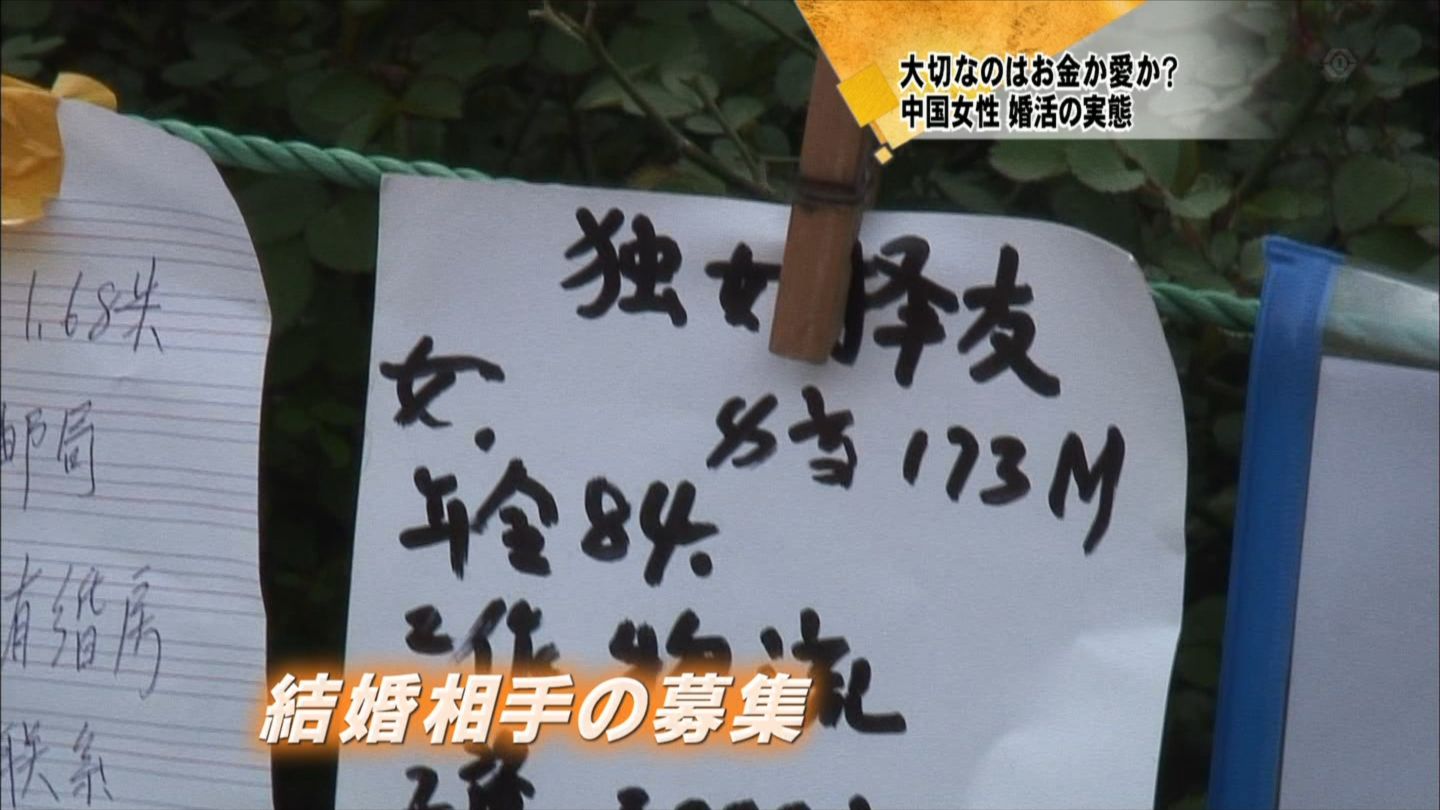 大切なのはお金か愛か?
中国女性 婚活の実態
1.68米
邮局
联系
独女择友
女.
173M
年令84.
工作 物流
結婚相手の募集